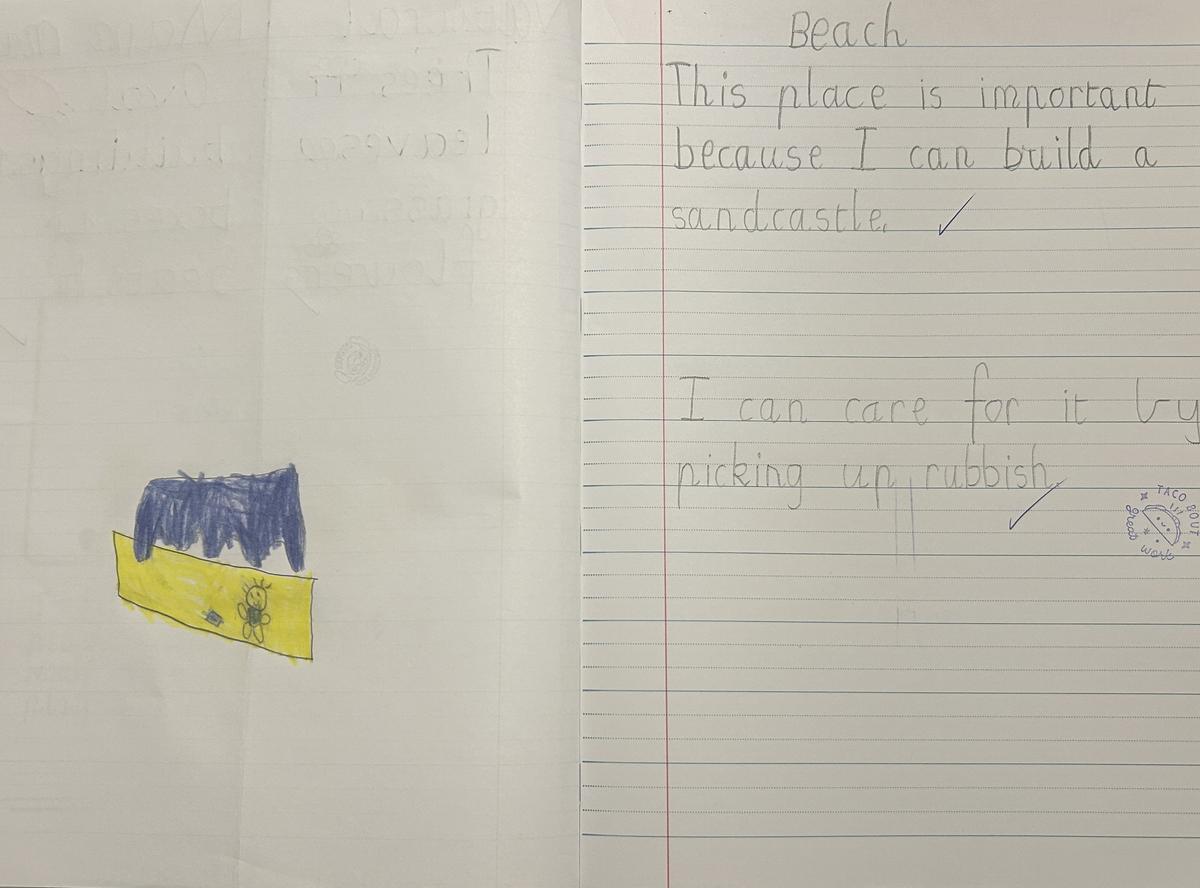 Beach
This place is important
because I can build a
sandcastle.
I can care for it by
picking up rubbish.
TACO BOUT
great work